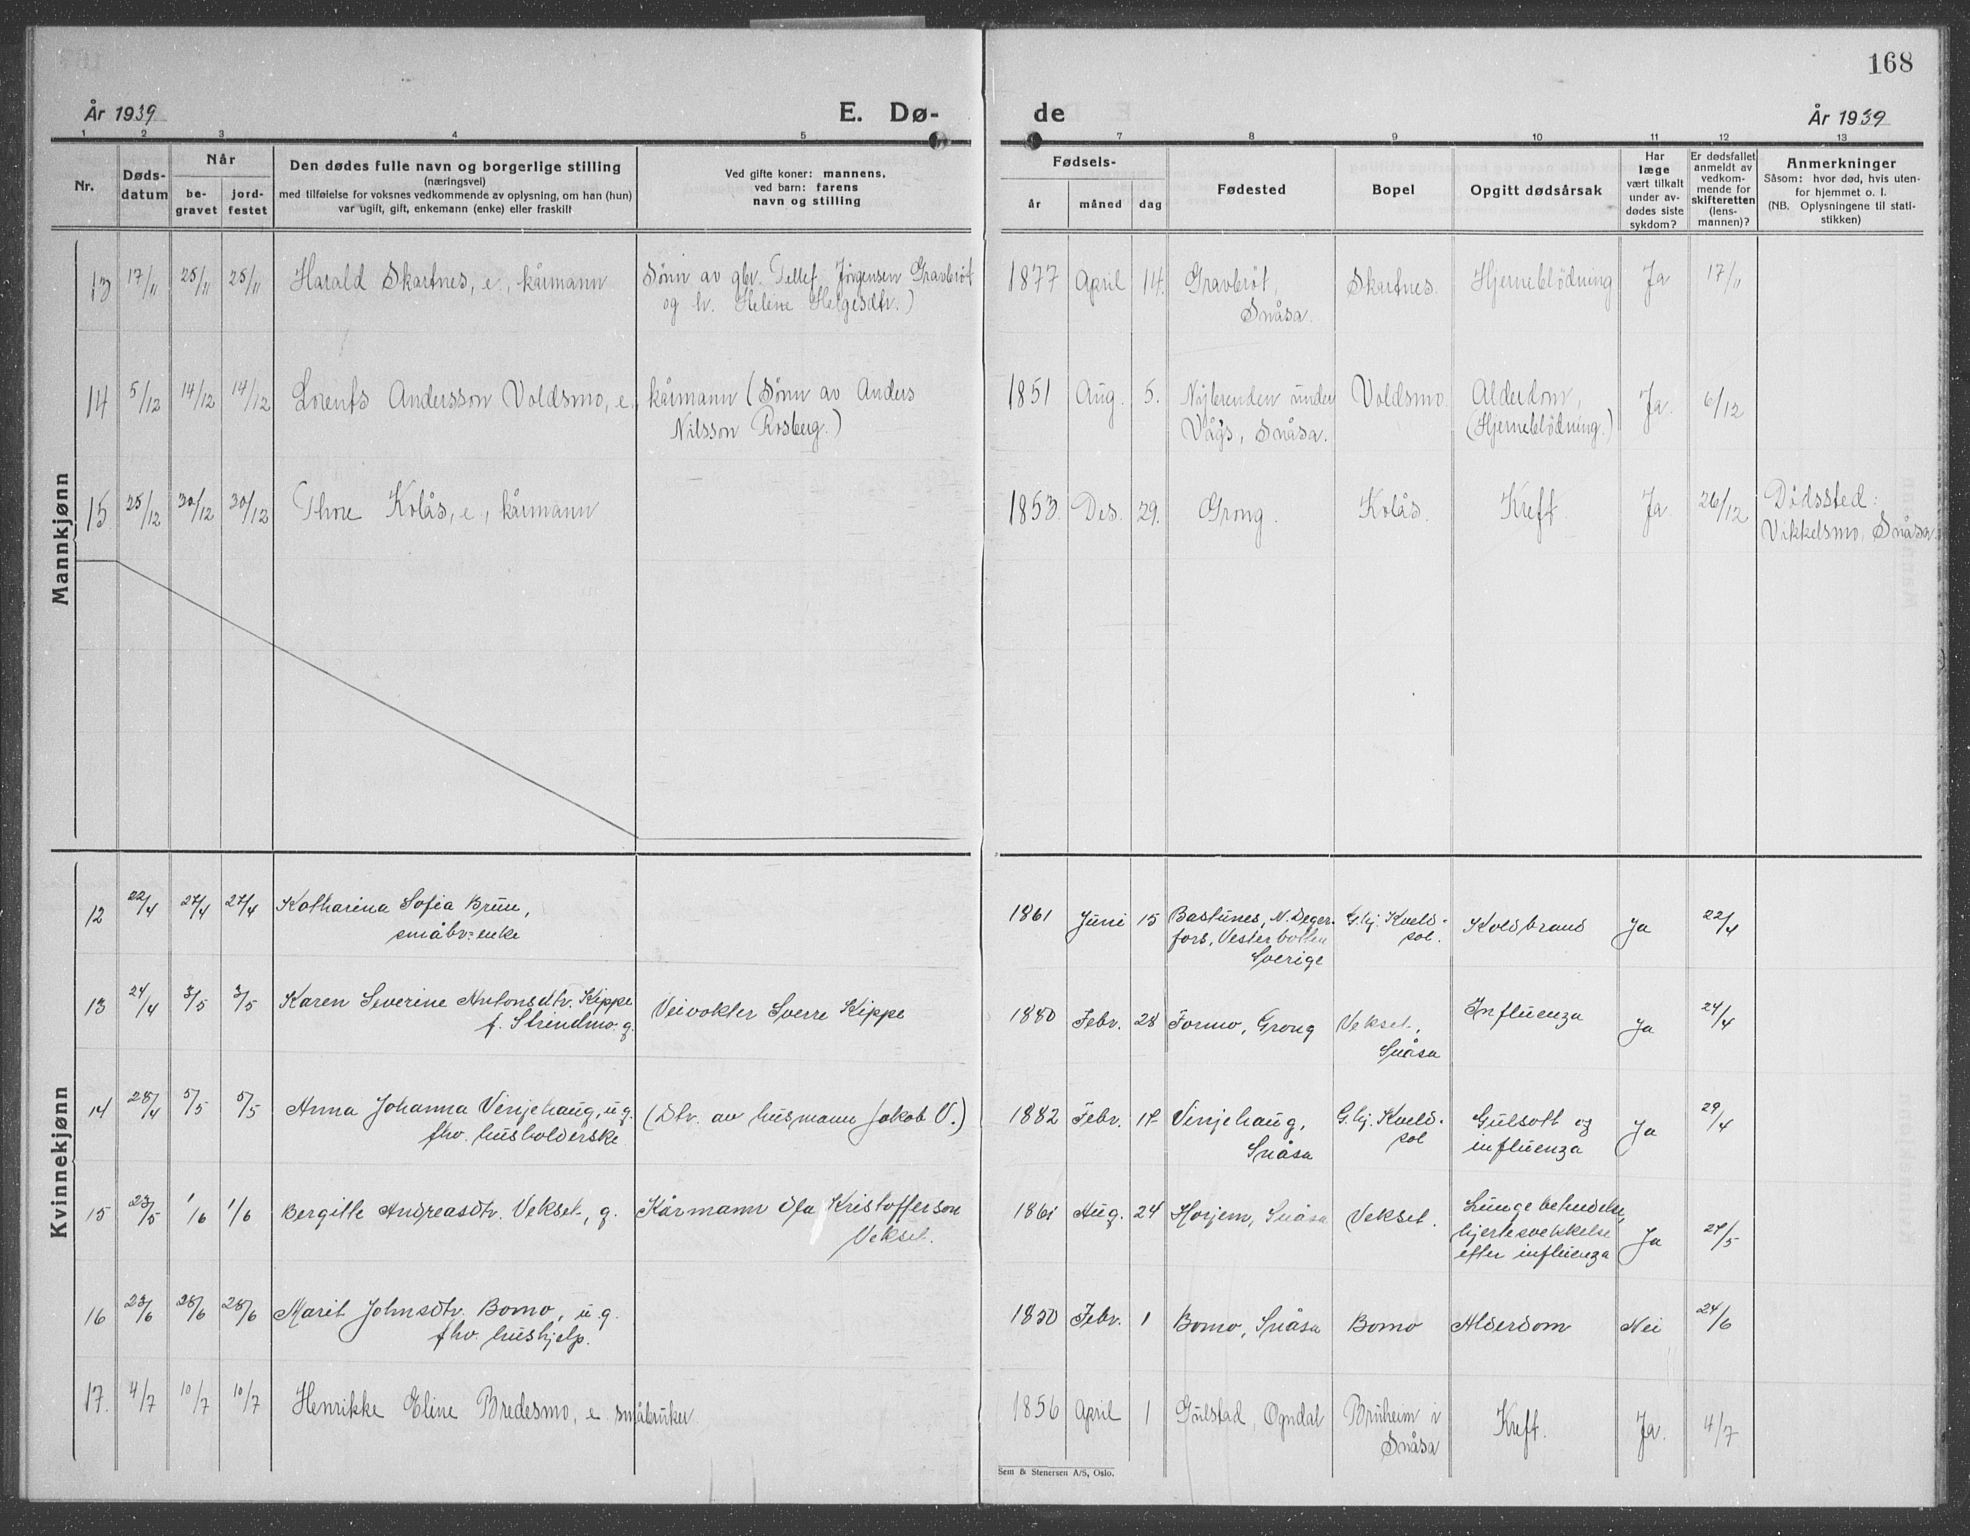 168
År 1939
E. Dø-
de
År 1939
1 2 3 4 5 7 8 9 10 11 12 13
Nr.
Døds-
datum
Når
be-
gravet
jord-
festet
Den dødes fulle navn og borgerlige stilling
(næringsvei)
med tilføielse for voksnes vedkommende av oplysning, om han (hun)
var ugift, gift, enkemann (enke) eller fraskilt
Ved gifte koner: mannens,
ved barn: farens
navn og stilling
Fødsels-
år
måned
dag
Fødested
Bopel
Opgitt dødsårsak
Har
læge
vært tilkalt
under av-
dødes siste
sykdom?
Er dødsfallet
anmeldt av
vedkom-
mende for
skifteretten
(lens-
mannen)?
Anmerkninger
Såsom: hvor død, hvis uten-
for hjemmet o. l.
(NB. Oplysningene til stati-
stikken)
Mannkjønn
13 17/11 25/11 25/11 Harald Skartnes, e., kårmann Sønn av gbr. Tellef Jørgensen Gravbrøt 1877 April 14. Gravbrøt, Skartnes. Hjerneblödning Ja 17/11
og h. Helene Helgesdtr.) Snåsa.
14 5/12 14/12 14/12 Lorents Andersson Voldsmo, e., kårmann (Sønn av Anders 1851 Aug. 5. under Voldsmo Alderdom, Ja. 6/12
Nilsson Rosberg.) Vågs, Snåsa. (Hjerneblödning.)
15 25/12 30/12 30/12 Thore Kolås, e., kårmann 1853. Des. 29. Grong. Kolås. Kreft. Ja. 26/12 Dødssted:
Vikkelsmo, Snåsa.
Kvinnekjønn
12 22/4 27/4 27/4 Katharina Sofia Brun, 1861 Juni 15 Bastunes, N. Deger- G.hj. Kveld- Koldbrand Ja 22/4
småbr. enke fors, Vesterbotten sol.
Sverige
13 24/4 3/5 3/5 Karen Severine Antonsdtr. Kippe Veivokter Sverre Kippe 1880 Febr. 28 Formo, Grong Vekset, Influenza Ja 24/4
f. Strindmo. g. Snåsa
14 28/4 5/5 5/5 Anna Johanna Vinjehaug, u.g. (Dtr. av husmann Jakob V.) 1882 Febr. Vinjehaug, G.hj. Kveld- Gulsott og Ja 29/4
fhv. husholderske. Snåsa sol influenza
15 23/5 1/6 1/6 Bergitte Andreasdtr. Vekset, g. Kårmann Ola Kristofferson 1861 Aug. 24 Horjem, Snåsa Vekset. Lungebetendelse,
Vekset. hjertesvekkelse Ja 27/5
efter influenza
16 23/6 28/6 28/6 Marit Johnsdtr. Bomo, u.g. 1850 Febr. 1 Bomo, Snåsa Bomo Alderdom Nei 24/6
fhv. hushjelp.
17. 4/7 10/7 10/7 Henrikke Eline Bredesmo, e. småbruker. 1856 April 1 Gulstad, Ogndal Bruheim i Kreft. Ja. 4/7
Snåsa
Sem & Stenersen A/S, Oslo.